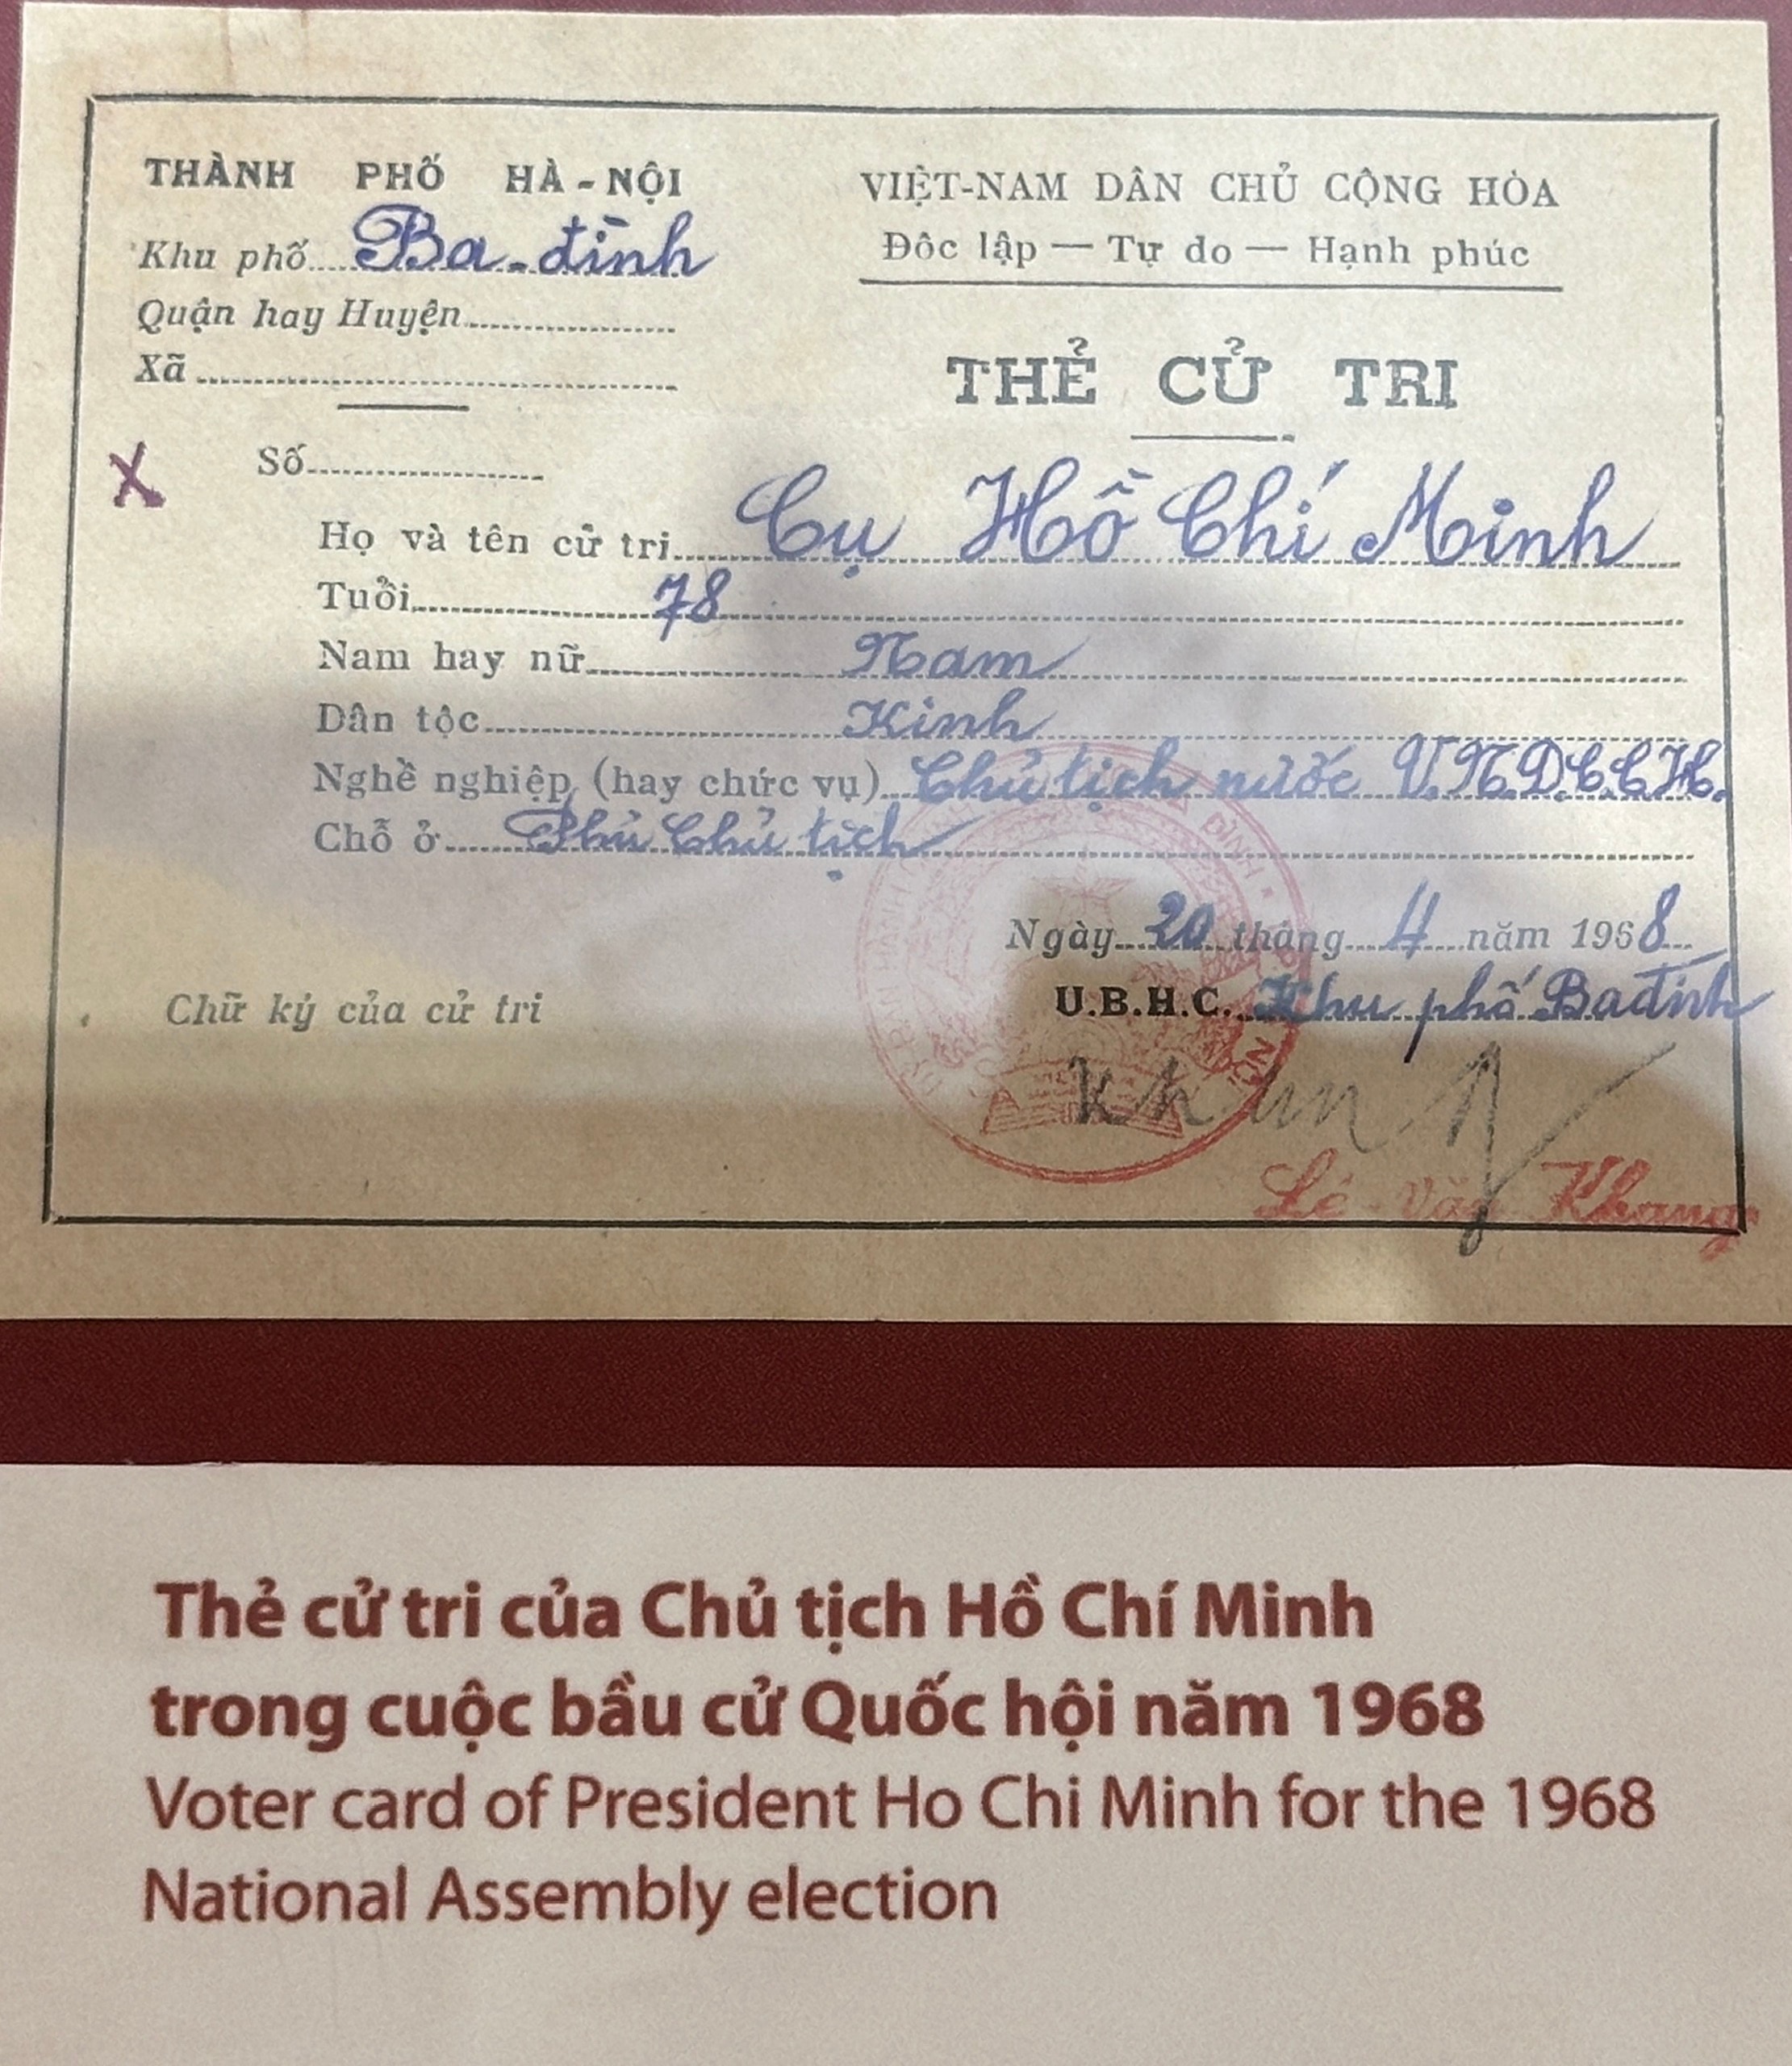 THÀNH PHỐ HÀ-NỘI
Khu phố Ba-đình
Quận hay Huyện
Xã
VIỆT-NAM DÂN CHỦ CỘNG HÒA
Độc lập — Tự do — Hạnh phúc
THẺ CỬ TRI
X
Số
Họ và tên cử tri Cụ Hồ Chí Minh
Tuổi 78
Nam hay nữ Nam
Dân tộc Kinh
Nghề nghiệp (hay chức vụ) Chủ tịch nước V.N.D.C.C.H.
Chỗ ở Phủ Chủ tịch
Ngày 20 tháng 4 năm 1968
U.B.H.C. Khu phố Ba đình
Chữ ký của cử tri
Lê-Văn Khang
Thẻ cử tri của Chủ tịch Hồ Chí Minh
trong cuộc bầu cử Quốc hội năm 1968
Voter card of President Ho Chi Minh for the 1968
National Assembly election